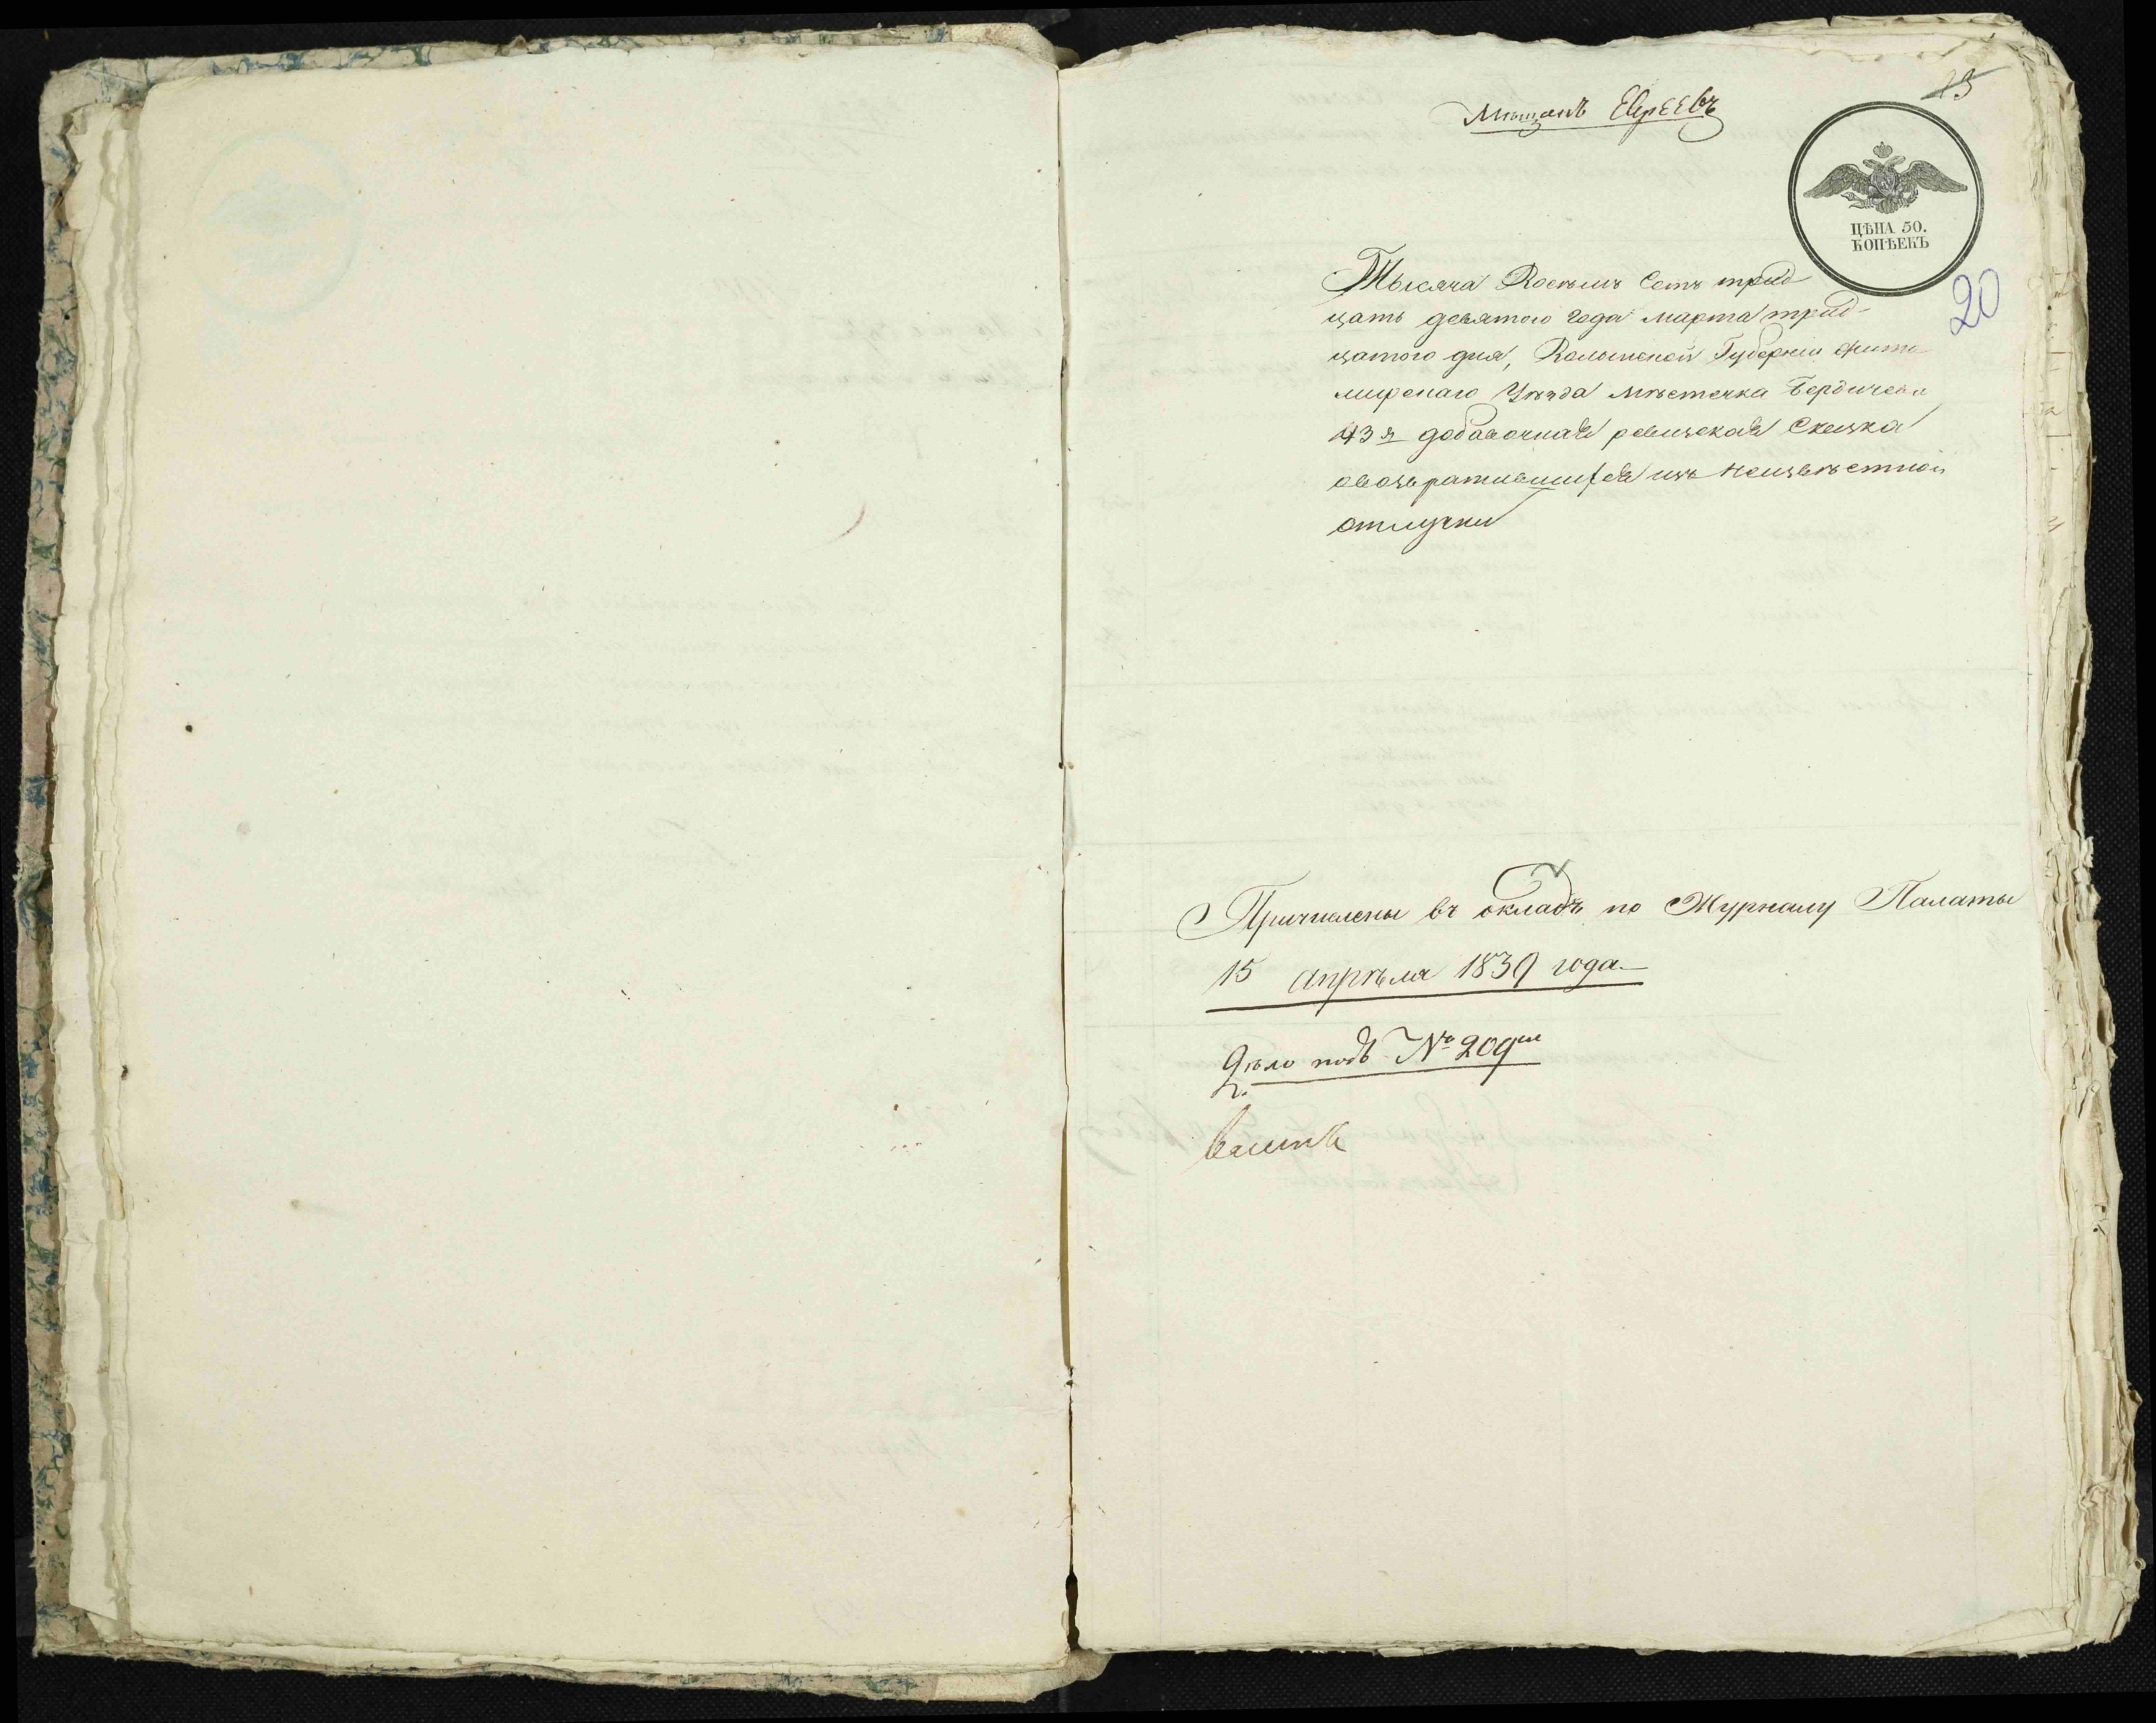 Мѣщанъ Евреевъ
13
ЦѢНА 50.
КОПѢЕКЪ
20
Тысяча Восемь Сотъ трид
цать девятого года марта трид-
цатого дня, Волынской Губерніи Жито
мирскаго Уѣзда мѣстечка Бердичева
43я добавочная ревизская Сказка
овозвратившихся изъ неизвѣстной
отлучки
Причислены въ окладъ по Журналу Палаты
15 апрѣля 1839 года
Дѣло подъ №